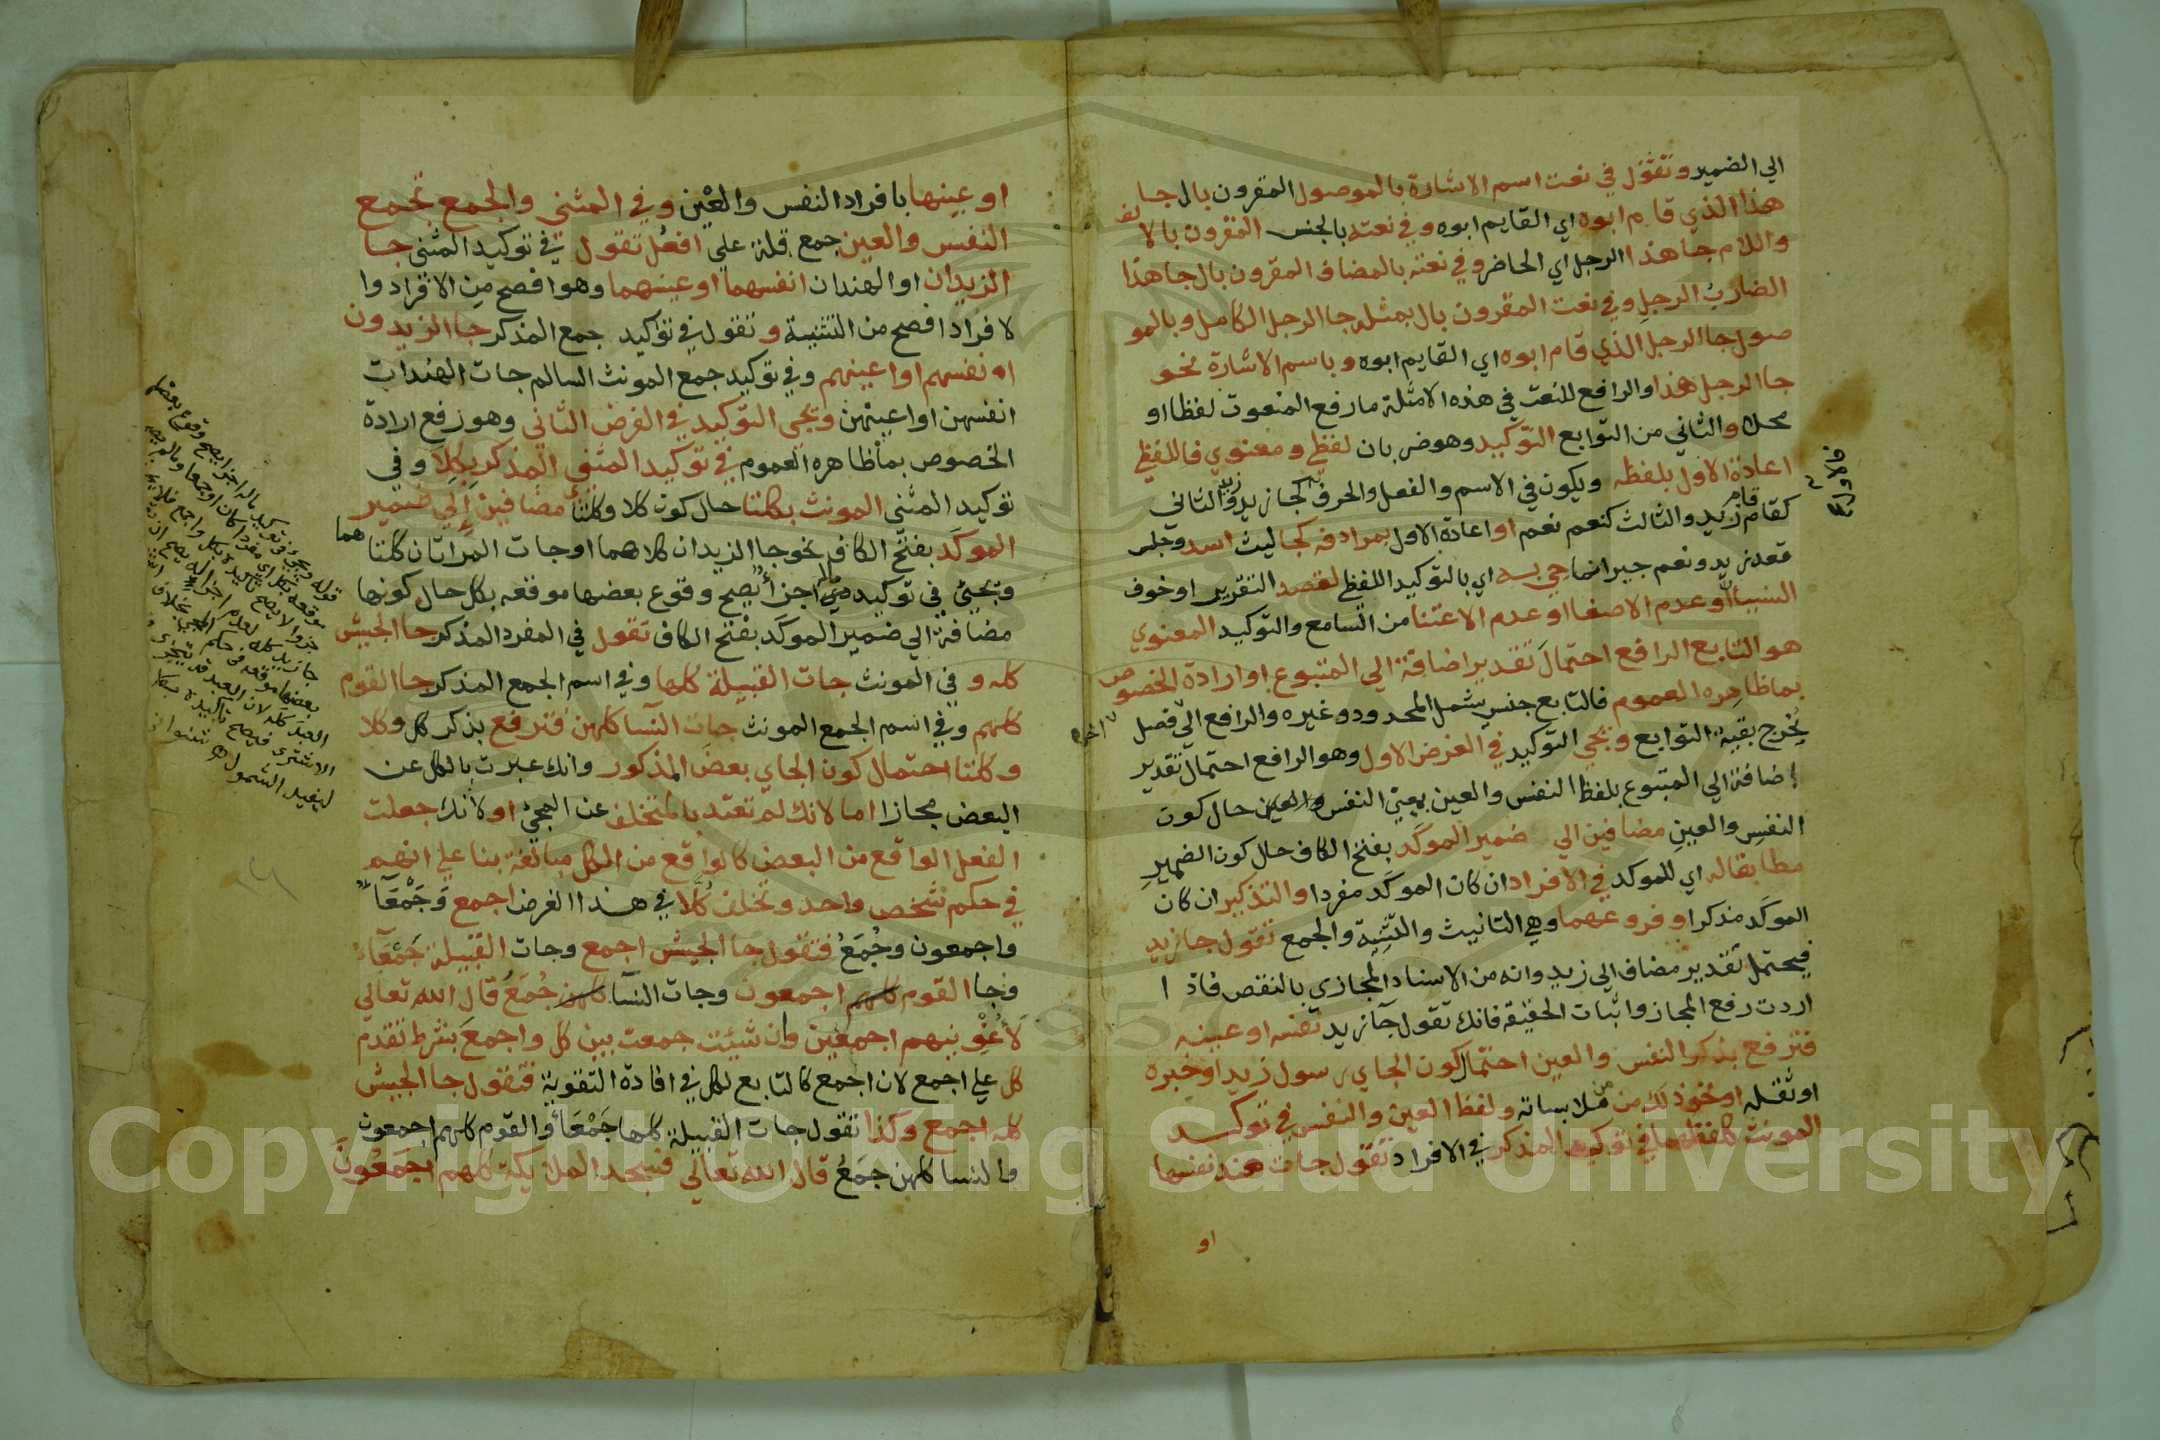 الي الضمير وتقول في نعت اسم الاشارة بالموصول المقرون بال جا
هذا الذي قام ابوه اي القايم ابوه وفي نعته بالجنس المقرون بالالف
واللام جا هذا الرجل اي الحاضر وفي نعته بالمضاف المقرون بال جا هذا
الضارب الرجل وفي نعت المقرون بال بمثله جا الرجل الكامل وبالمو
صول جا الرجل الذي قام ابوه اي القايم ابوه وباسم الاشارة نحو
جا الرجل هذا والرافع للنعت في هذه الامثلة ما رفع المنعوت لفظا او
محلا والثاني من التوابع التوكيد وهو ضربان لفظي ومعنوي فاللفظي
اعادة الاول بلفظه ويكون في الاسم والفعل والحرف كجا زيد زيد والثاني
كقام قام زيد والثالث كنعم نعم او اعادة الاول بمرادفه كجا ليث اسد وجلس
قعد زيد ونعم جير انما جي به اي بالتوكيد اللفظي لقصد التقرير او خوف
النسيان او عدم الاصغا او عدم الاعتنا من السامع والتوكيد المعنوي
هو التابع الرافع احتمال تقدير اضافة الي المتبوع او ارادة الخصوص
بما ظاهره العموم فالتابع جنس يشمل المحدود وغيره والرافع الي فصل
يخرج بقية التوابع ويجي التوكيد في الغرض الاول وهو الرافع احتمال تقدير
اضافة الي المتبوع بلفظ النفس والعين بمعني النفس والعين حال كون
النفس والعين مضافين الي ضمير الموكد بفتح الكاف حال كون الضمير
مطابقا له اي للموكد في الافراد ان كان الموكد مفردا والتذكير ان كان
الموكد مذكرا وفروعهما وهي التانيث والتثنية والجمع تقول جا زيد
فيحتمل تقدير مضاف الي زيد وانه من الاسناد المجازي بالنقص فاذا
اردت رفع المجاز واثبات الحقيقة فانك تقول جآ زيد نفسه او عينه
فترفع بذكر النفس والعين احتمال كون الجاي رسول زيد او خبره
او ثقله او نحو ذلك من ملابساته ولفظ العين والنفس في توكيد
المونث كلفظهما في توكيد المذكر في الافراد تقول جات هند نفسها
او
او عينها بافراد النفس والعين وفي المثني والجمع تجمع
النفس والعين جمع قلة علي افعل تقول في توكيد المثني جا
الزيدان او الهندان انفسهما او عينهما وهو افصح من الافراد وا
لافراد افصح من التثنية وتقول في توكيد جمع المذكر جا الزيدون
انفسهم او اعينهم وفي توكيد جمع المونث السالم جات الهندات
انفسهن او اعينهن ويجي التوكيد في الغرض الثاني وهو رفع ارادة
الخصوص بما ظاهره العموم في توكيد المثني المذكر بكلا وفي
توكيد المثني المونث بكلتا حال كون كلا وكلتا مضافين الي ضمير
الموكد بفتح الكاف نحو جا الزيدان كلاهما او جات المراتان كلتاهما
ويجي في توكيد ذي اجزأ يصح وقوع بعضها موقعه بكل حال كونها
مضافة الي ضمير الموكد بفتح الكاف تقول في المفرد المذكر جا الجيش
كله وفي المونث جات القبيلة كلها وفي اسم الجمع المذكر جا القوم
كلهم وفي اسم الجمع المونث جات النسآ كلهن فترفع بذكر كل وكلا
وكلتا احتمال كون الجاي بعض المذكور وانك عبرت بالكل عن
البعض مجازا اما لانك لم تعتد بالمتخلف عن المجي او لانك جعلت
الفعل الواقع من البعض كالواقع من الكل مبالغة بنا علي انهم
في حكم شخص واحد وتخلف كلا في هذا الغرض اجمع وجمعآ
واجمعون وجمع فتقول جا الجيش اجمع وجات القبيلة جمعآء
وجا القوم كلهم اجمعون وجات النسآ كلهن جمع قال الله تعالي
لاغوينهم اجمعين وان شيئت جمعت بين كل واجمع بشرط تقدم
كل علي اجمع لان اجمع كالتابع لكل في افادة التقوية فتقول جا الجيش
كله اجمع وكذا تقول جات القبيلة كلها جمعآ والقوم كلهم اجمعون
والنسا كلهن جمع قال الله تعالي فسجد الملايكة كلهم اجمعون
Copyright © King Saud University
1957